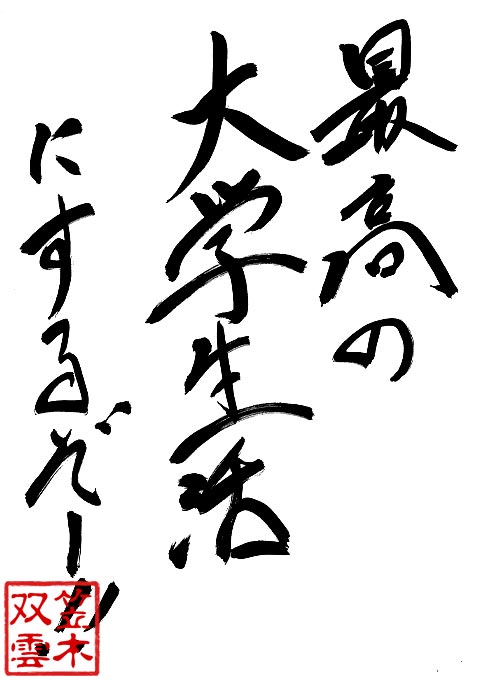 最高の
大学生活
にするぞー!!
笠木
双雲